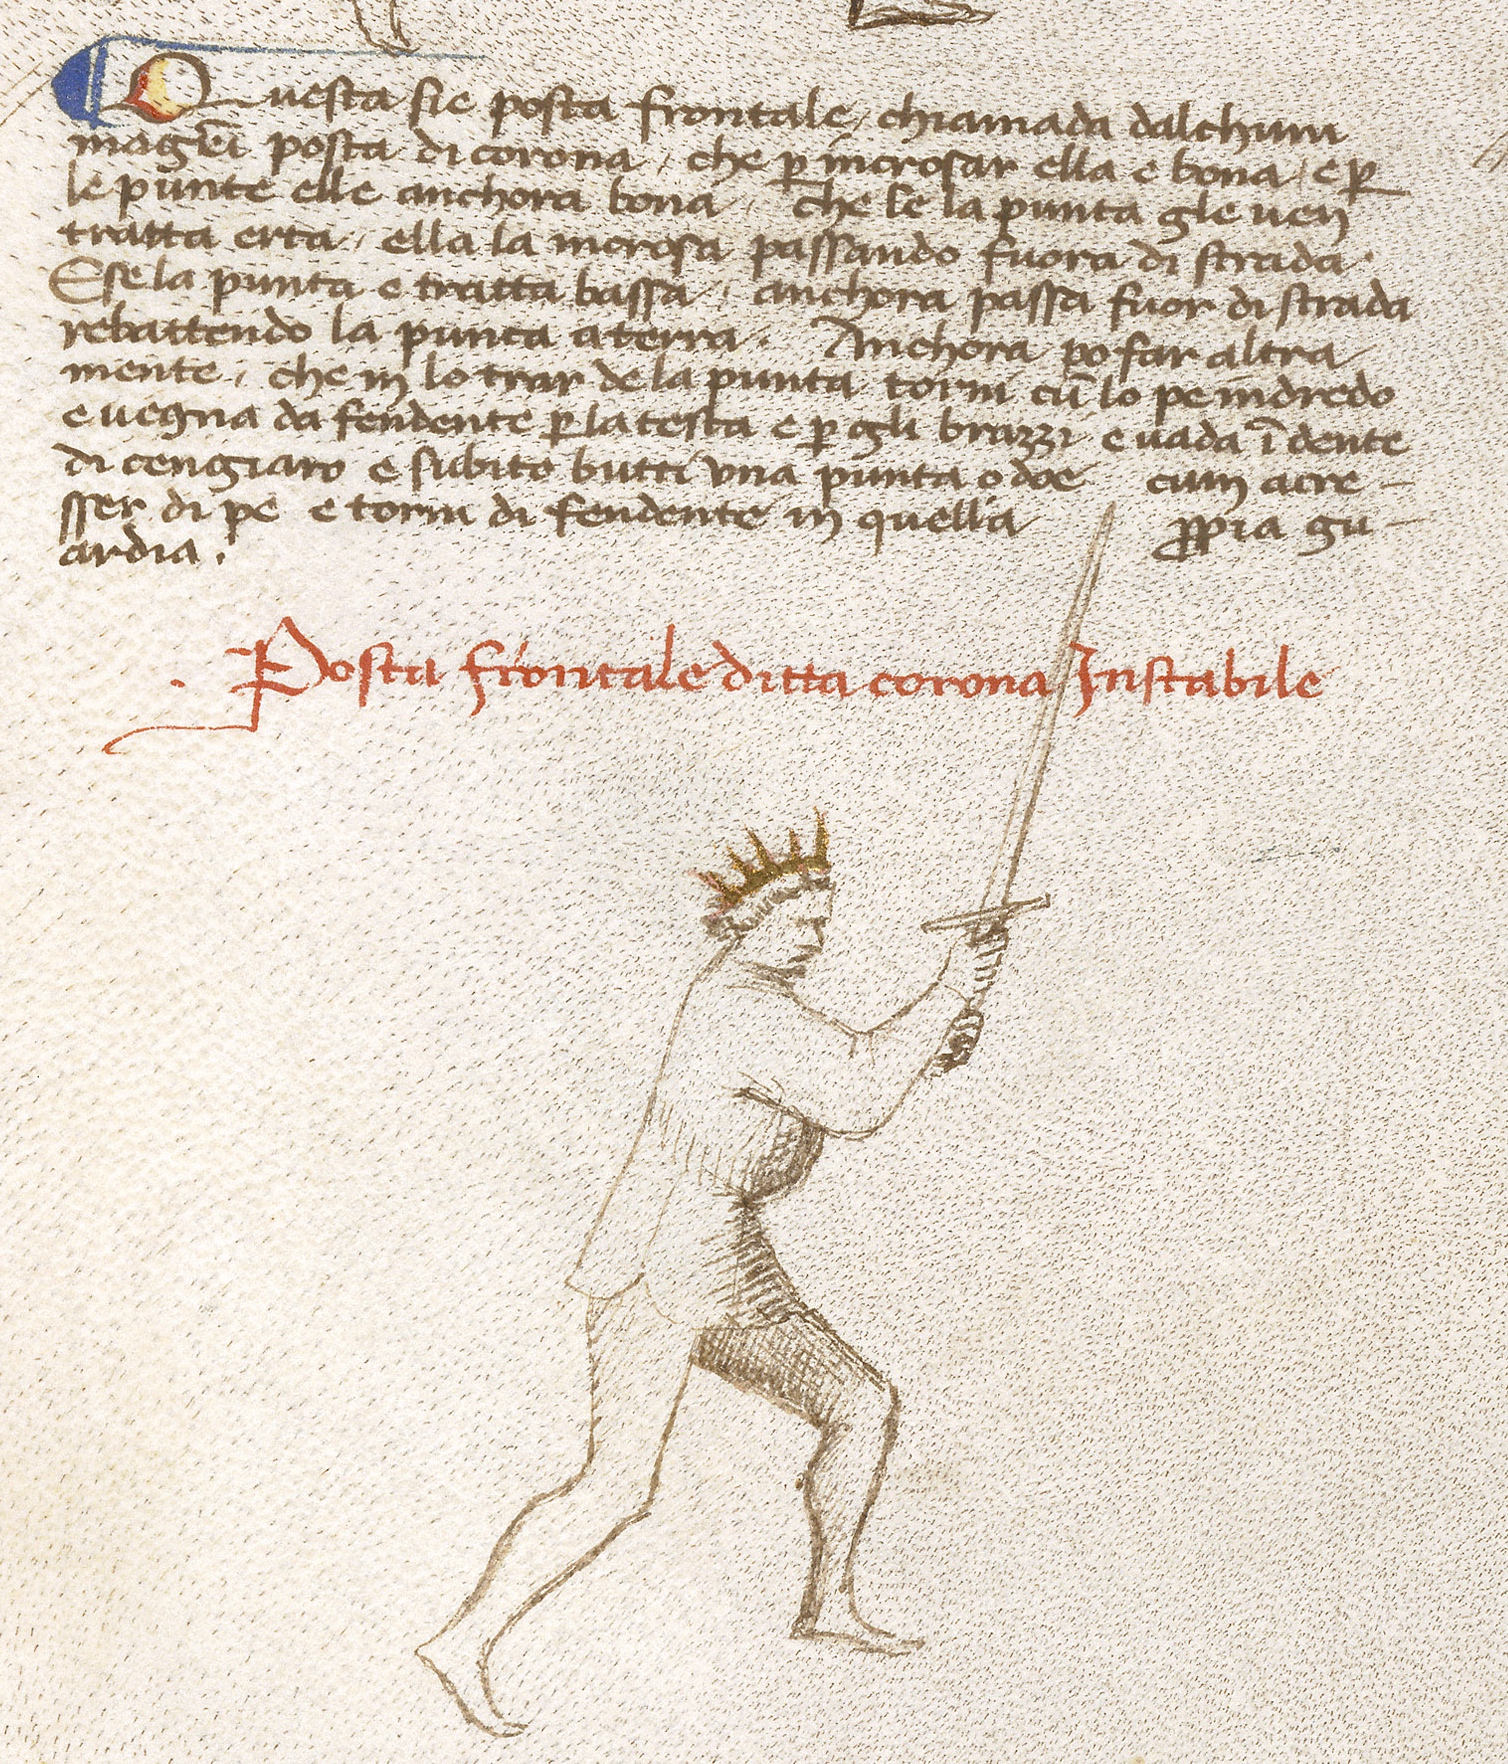 Questa sie posta frontale, chiamada dalchun
magr̄i posta di corona, che ꝑ incrosar ella e bona, e ꝑ
le punte elle anchora bona, che se la punta gle ven
tratta erta, ella la incrosa passando fuora di strada.
E se la punta e tratta bassa, anchora passa fuor di strada
rebattendo la punta a terra. Anchora po far altra
mente, che in lo trar de la punta torni cū lo pe indredo
e vegna da fendente ꝑ la testa e ꝑ gli brazzi e vada ī dente
di cengiaro e subito butti una punta o doe cum acre-
sser di pe e torni di fendente in quella ꝓpia gu-
ardia.
Posta frontale ditta corona Instabile